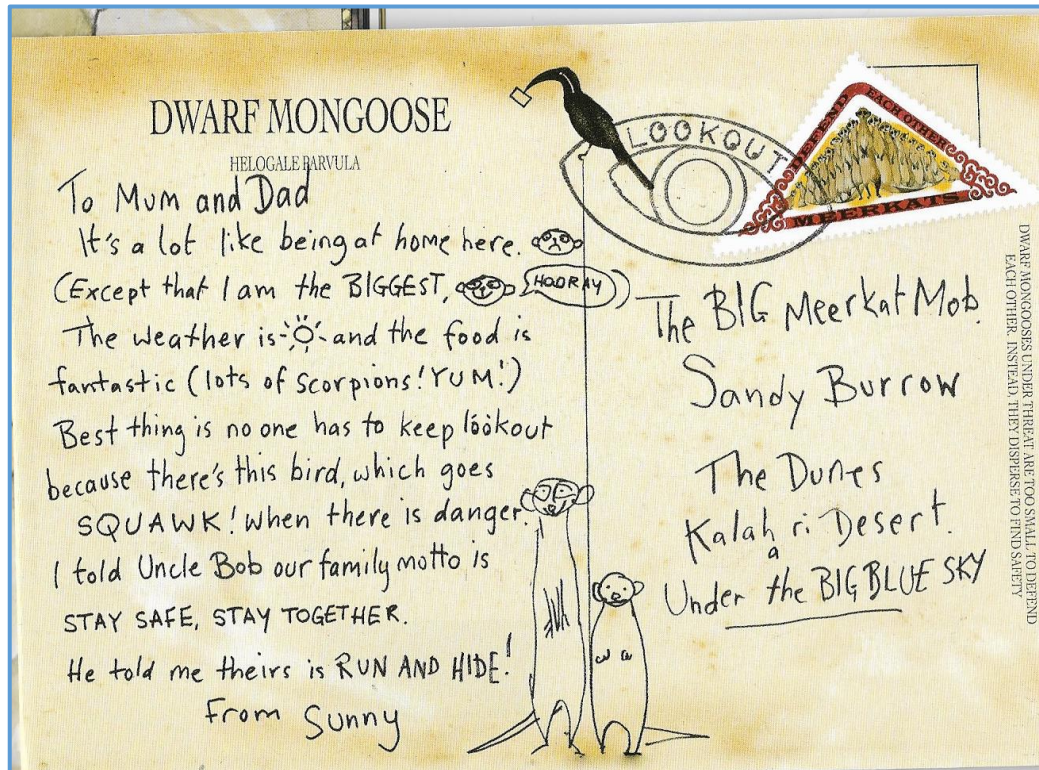 DWARF MONGOOSE
HELOGALE PARVULA
To Mum and Dad
It's a lot like being at home here.
(Except that I am the BIGGEST, HOORAY)
The weather is and the food is
fantastic (lots of scorpions! YUM!)
Best thing is no one has to keep lookout
because there's this bird, which goes
SQUAWK! when there is danger.
I told Uncle Bob our family motto is
STAY SAFE, STAY TOGETHER.
He told me theirs is RUN AND HIDE!
From Sunny
LOOKOUT
DEFEND
EACH OTHER
MEERKATS
The BIG Meerkat Mob.
Sandy Burrow
The Dunes
Kalahari Desert.
Under the BIG BLUE SKY
DWARF MONGOOSES UNDER THREAT ARE TOO SMALL TO DEFEND
EACH OTHER. INSTEAD, THEY DISPERSE TO FIND SAFETY